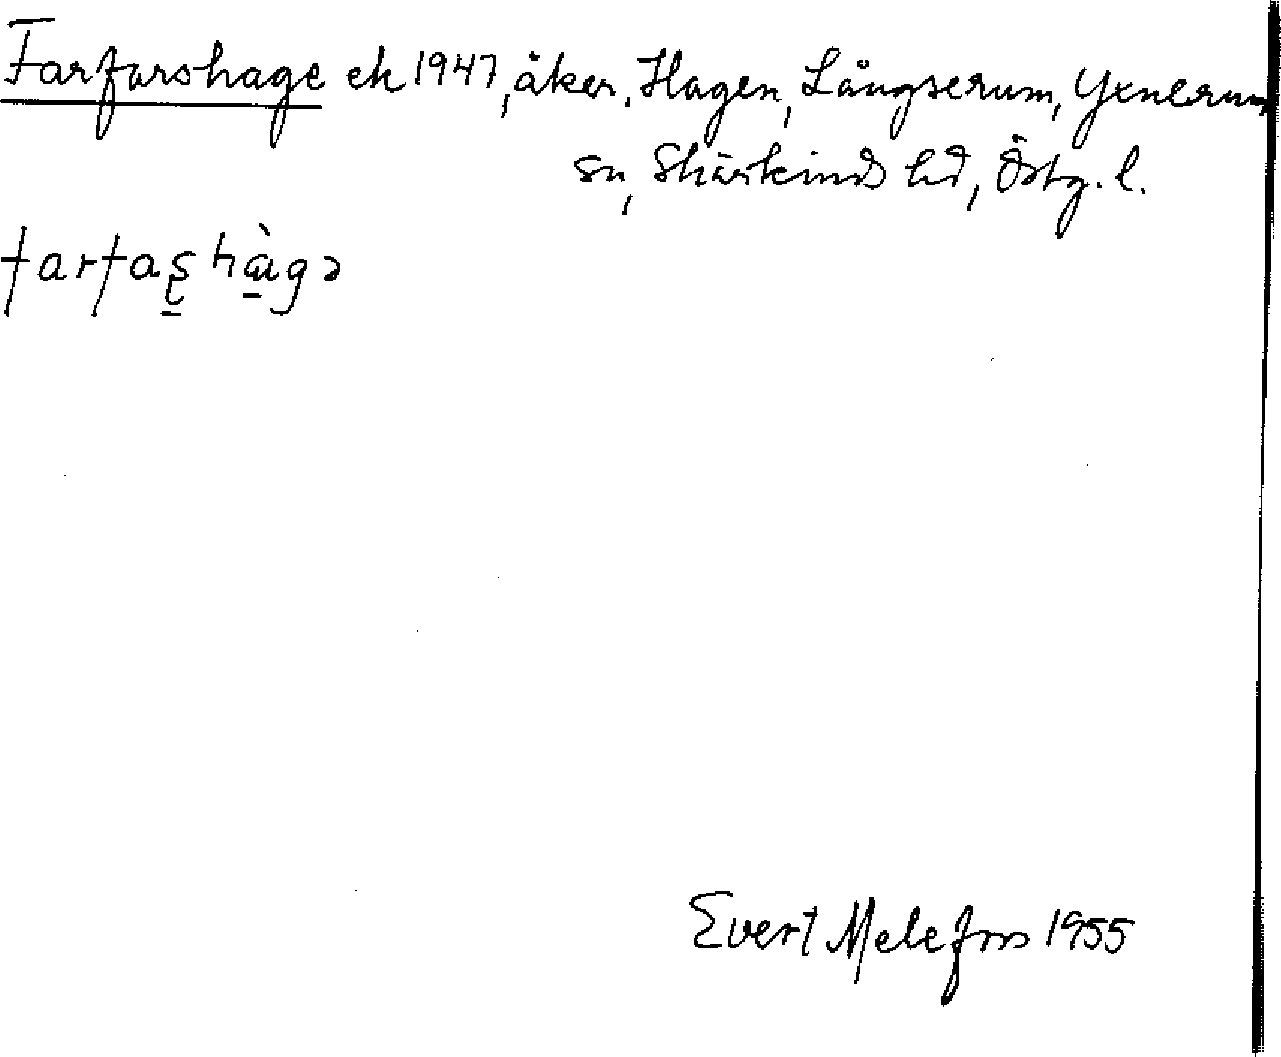 Farfarshage ek 1947, åker, Hagen, Långserum, Yxnerum
sn, Skärkinds hd, Östg. l.
farfaʂ hàgə
Evert Melefors 1955